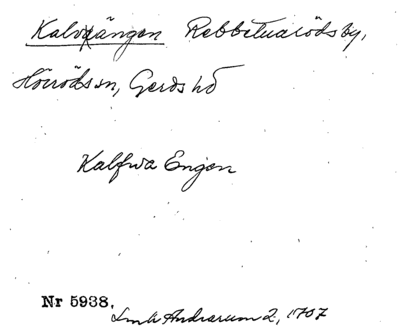 Kalvängen Rebbetuarödsby,
Hörröds sn, Gerds hd
Kalfwa Engen
Nr 5938.
LmA Andrarum 2, 1707